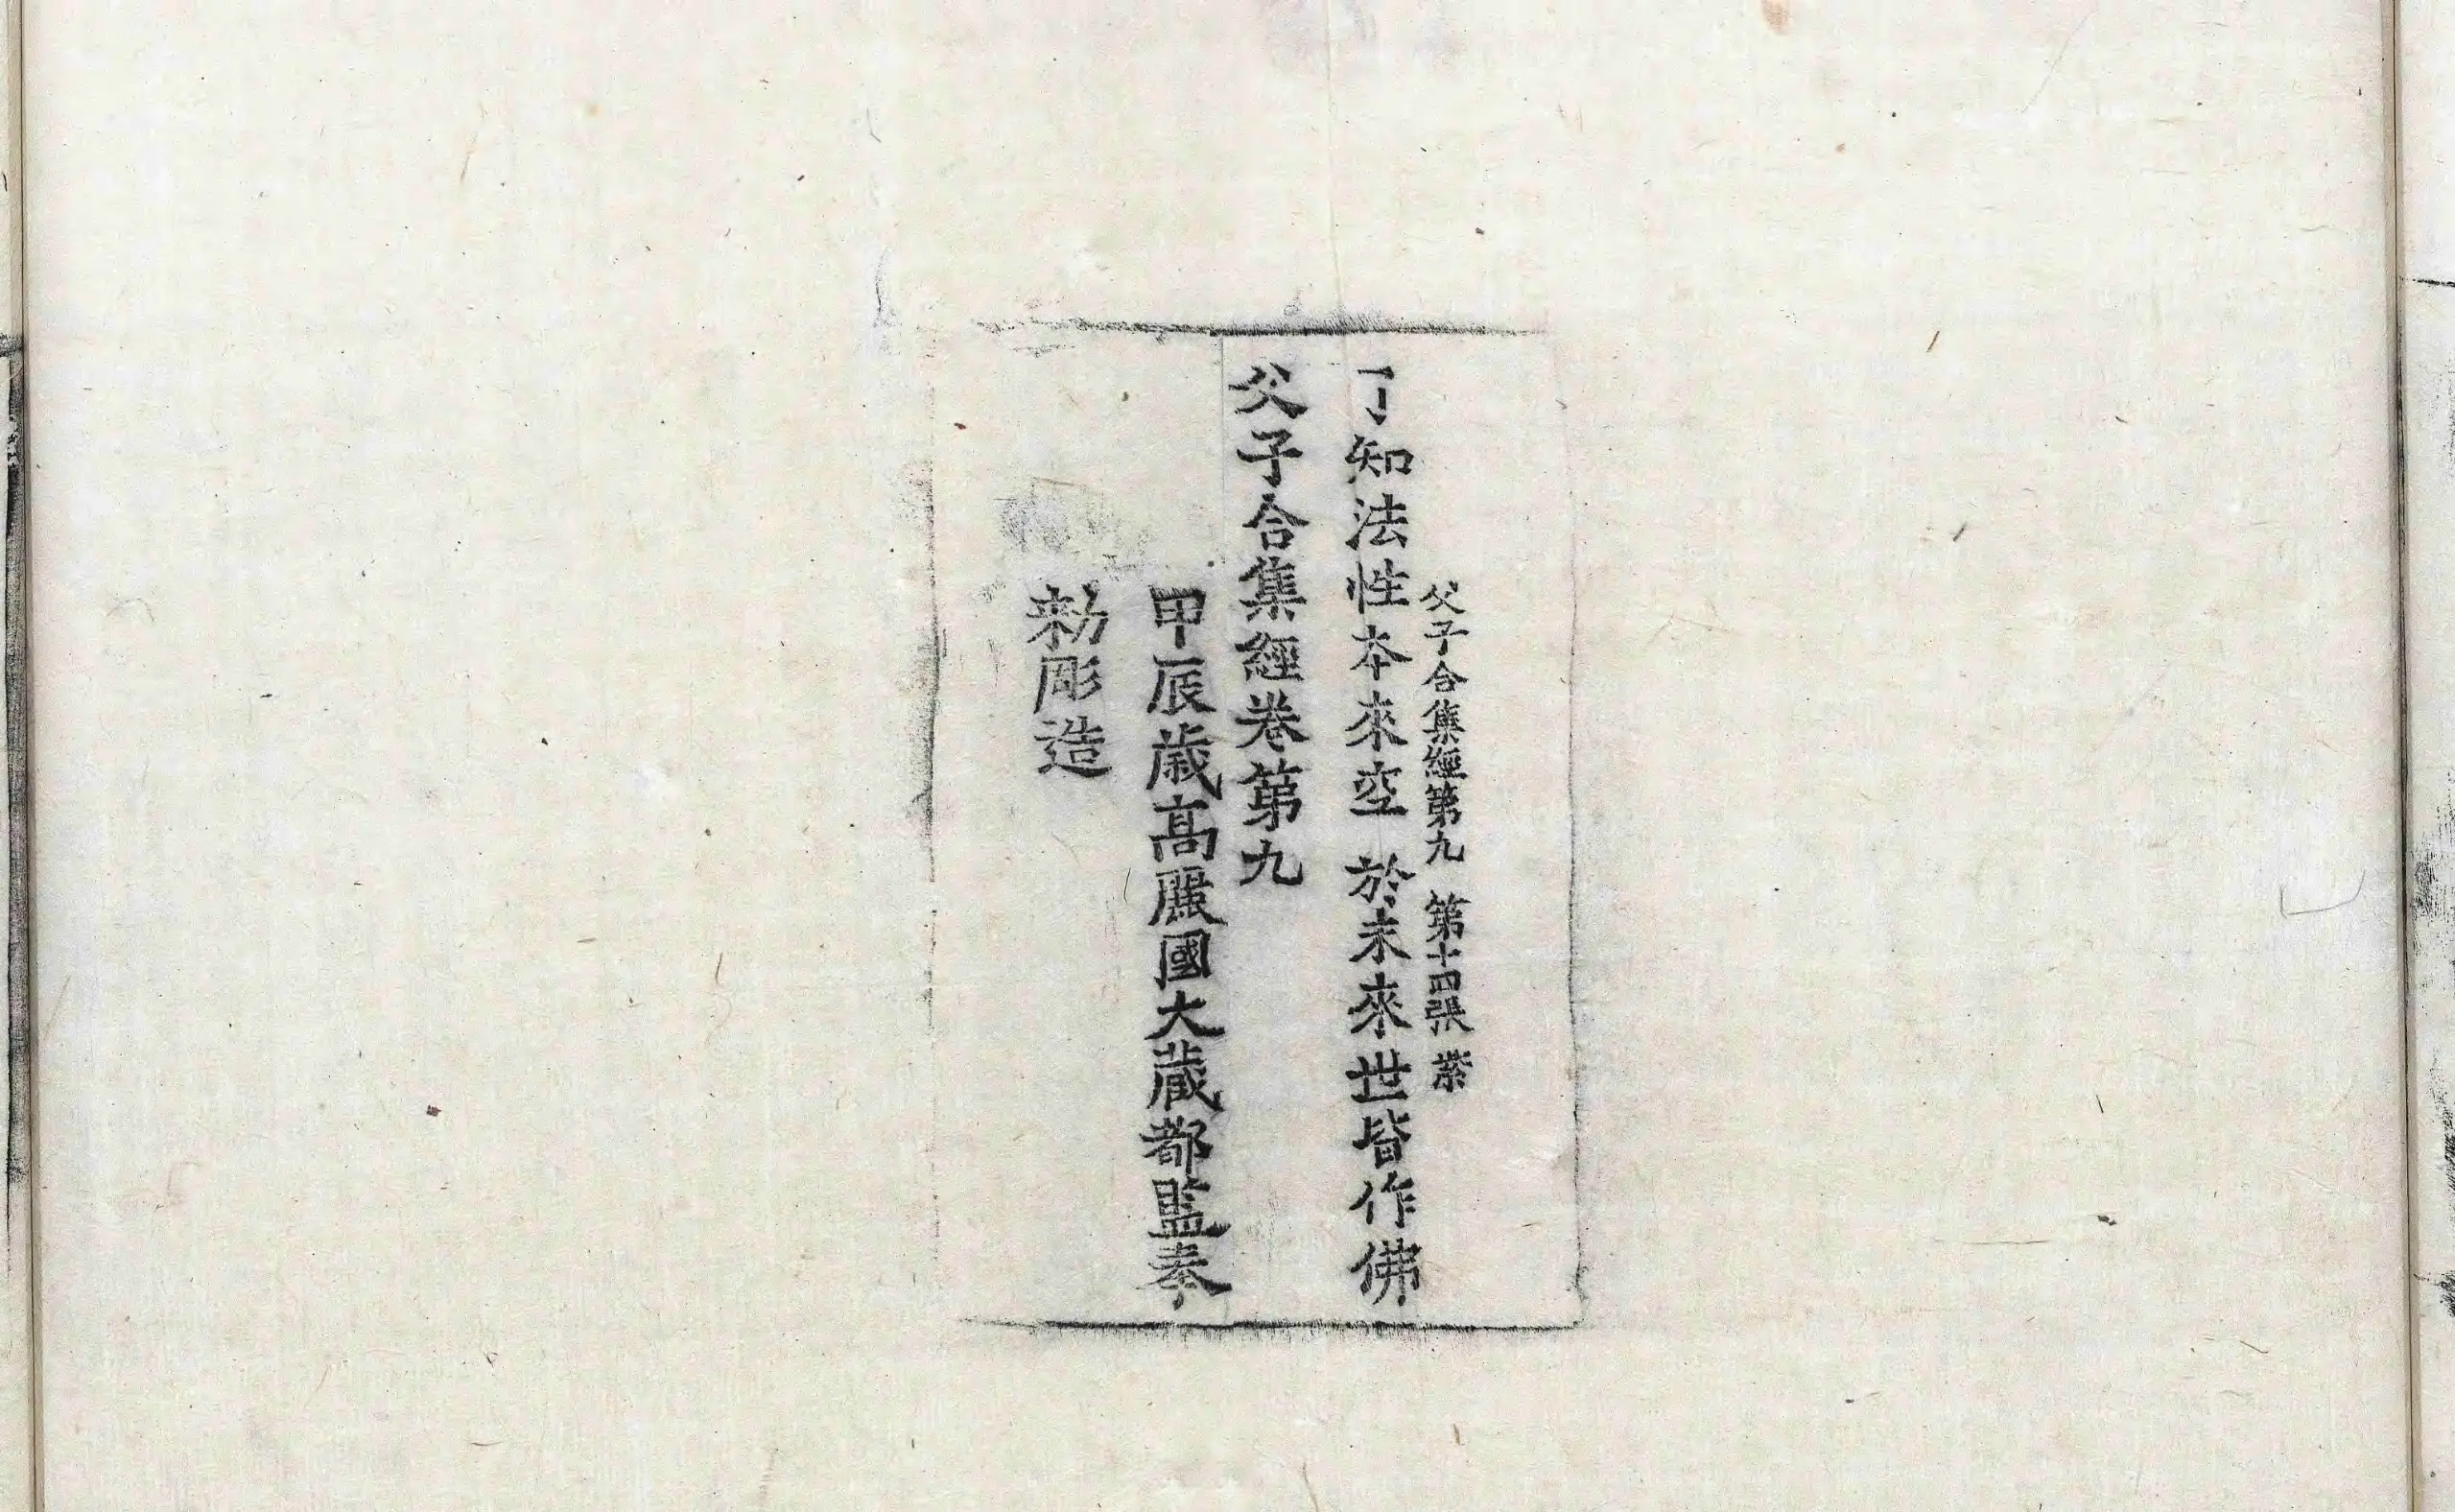 父子合集經第九 第十四張 紫
了知法性本來空 於未來世皆作佛
父子合集經卷第九
甲辰歲高麗國大藏都監奉
勑彫造